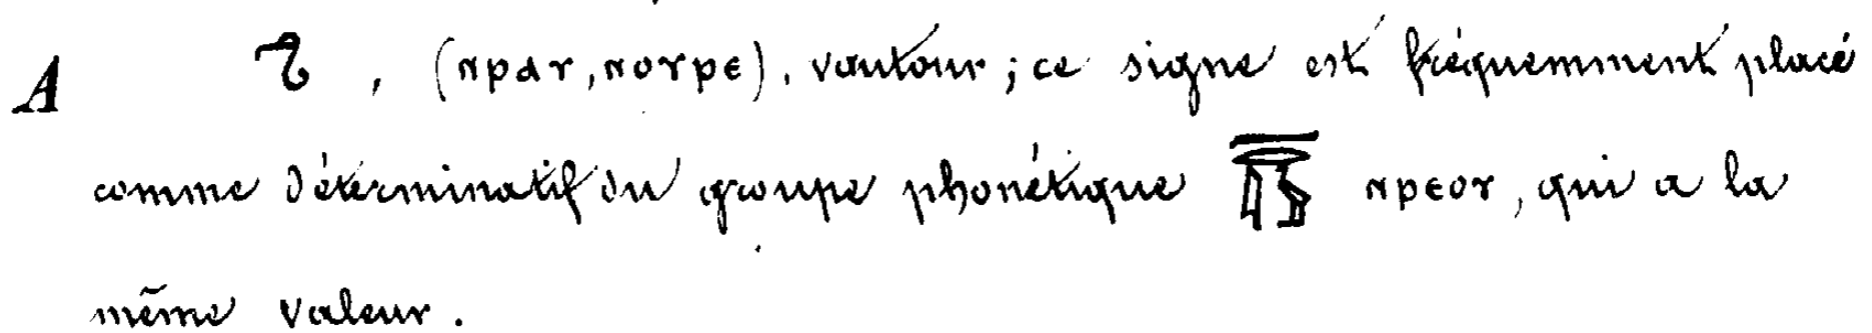 A , (ⲛⲣⲁⲩ, ⲛⲟⲩⲣⲉ). vautour ; ce signe est fréquemment placé
comme déterminatif du groupe phonétique ⲛⲣⲉⲟⲩ, qui a la
même valeur.